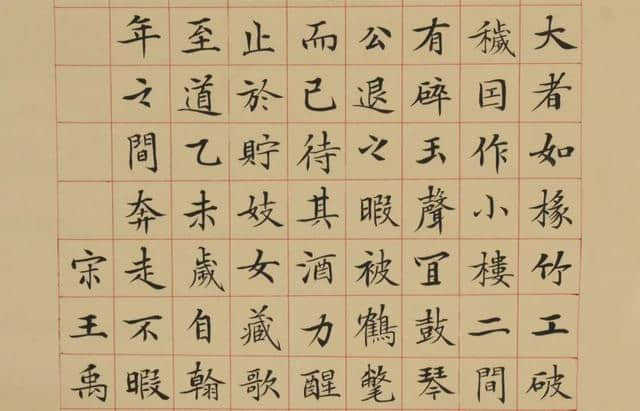 大者如椽竹工破
穢因作小樓二間
有碎玉聲宜鼓琴
公退之暇被鶴氅
而已待其酒力醒
止於貯妓女藏歌
至道乙未歲自翰
年之間奔走不暇
宋王禹